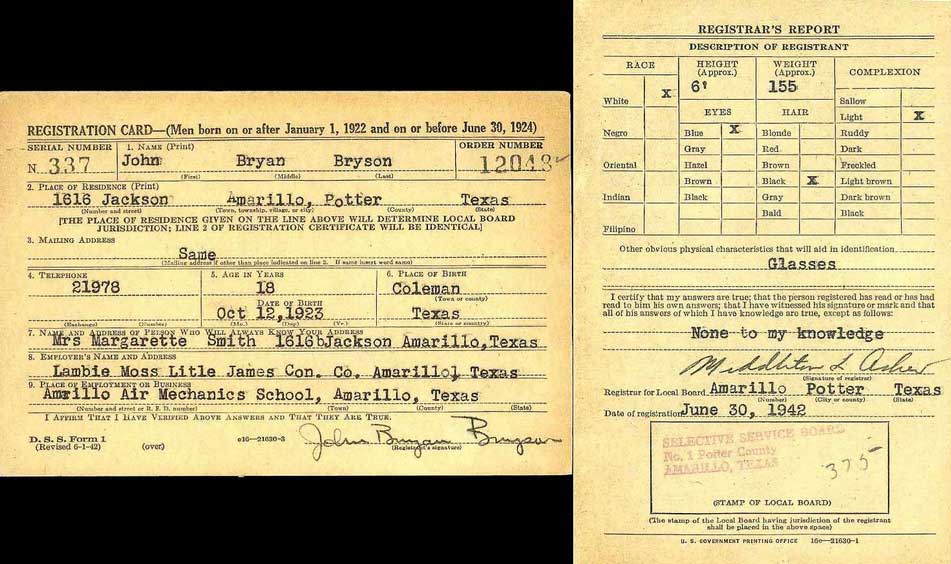 REGISTRATION CARD—(Men born on or after January 1, 1922 and on or before June 30, 1924)
SERIAL NUMBER 1. NAME (Print) ORDER NUMBER
N 337 John Bryan Bryson 12048
(First) (Middle) (Last)
2. PLACE OF RESIDENCE (Print)
1616 Jackson Amarillo, Potter Texas
(Number and street) (Town, township, village, or city) (County) (State)
[THE PLACE OF RESIDENCE GIVEN ON THE LINE ABOVE WILL DETERMINE LOCAL BOARD
JURISDICTION; LINE 2 OF REGISTRATION CERTIFICATE WILL BE IDENTICAL]
3. MAILING ADDRESS
Same
(Mailing address if other than place indicated on line 2. If same insert word same)
4. TELEPHONE 5. AGE IN YEARS 6. PLACE OF BIRTH
21978 18 Coleman
(Town or county)
DATE OF BIRTH
Oct 12,1923 Texas
(Exchange) (Number) (Mo.) (Day) (Yr.) (State or country)
7. NAME AND ADDRESS OF PERSON WHO WILL ALWAYS KNOW YOUR ADDRESS
Mrs Margarette Smith 1616bJackson Amarillo,Texas
8. EMPLOYER'S NAME AND ADDRESS
Lambie Moss Litle James Con. Co. Amarillo, Texas
9. PLACE OF EMPLOYMENT OR BUSINESS
Amarillo Air Mechanics School, Amarillo, Texas
(Number and street or R. F. D. number) (Town) (County) (State)
I AFFIRM THAT I HAVE VERIFIED ABOVE ANSWERS AND THAT THEY ARE TRUE.
D. S. S. Form 1
(Revised 6-1-42) (over) c16—21630-3 John Bryan Bryson
(Registrant's signature)
REGISTRAR'S REPORT
DESCRIPTION OF REGISTRANT
RACE HEIGHT (Approx.) WEIGHT (Approx.) COMPLEXION
6' 155
White X
EYES HAIR
Sallow
Light X
Negro Blue X Blonde Ruddy
Gray Red Dark
Oriental Hazel Brown Freckled
Brown Black X Light brown
Indian Black Gray Dark brown
Bald Black
Filipino
Other obvious physical characteristics that will aid in identification
Glasses
I certify that my answers are true; that the person registered has read or has had
read to him his own answers; that I have witnessed his signature or mark and that
all of his answers of which I have knowledge are true, except as follows:
None to my knowledge
(Signature of registrar)
Registrar for Local Board Amarillo Potter Texas
(Number) (City or county) (State)
Date of registration June 30, 1942
SELECTIVE SERVICE BOARD
No. 1 Potter County
AMARILLO, TEXAS
375
(STAMP OF LOCAL BOARD)
(The stamp of the Local Board having jurisdiction of the registrant
shall be placed in the above space)
U. S. GOVERNMENT PRINTING OFFICE 16c—21630-1